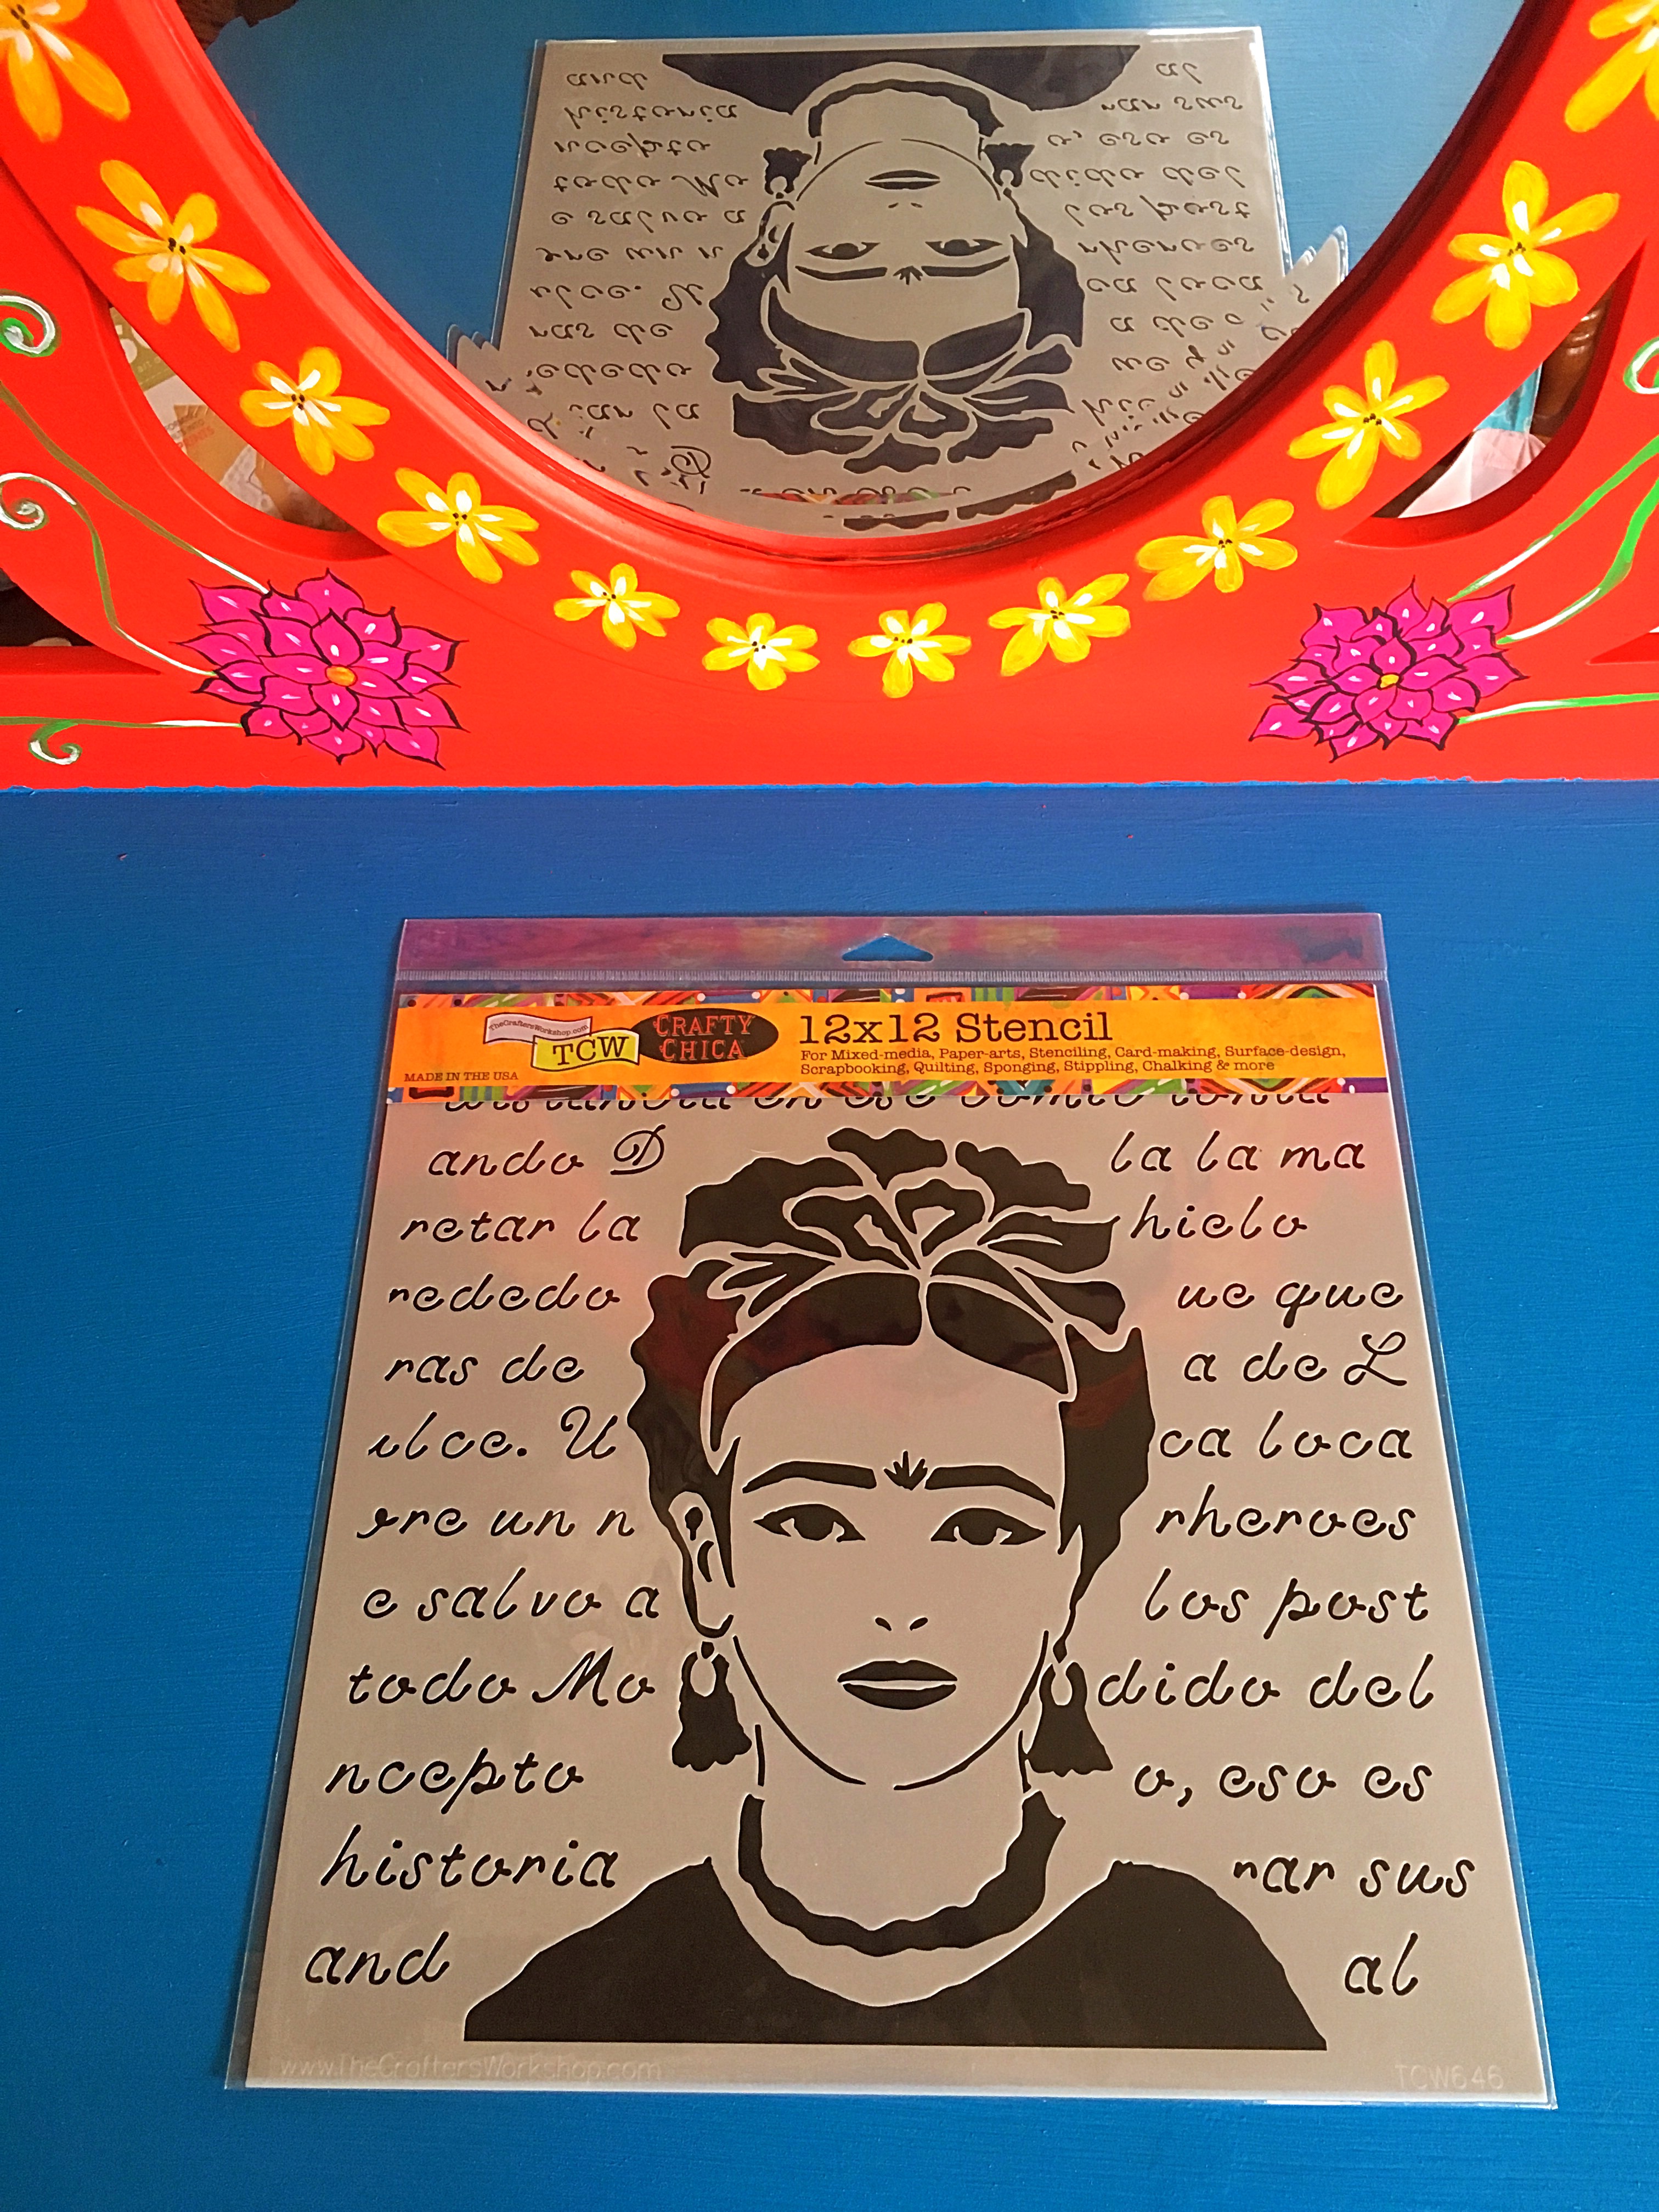 TheCraftersWorkshop.com
TCW
CRAFTY
CHICA
12x12 Stencil
For Mixed-media, Paper-arts, Stenciling, Card-making, Surface-design,
Scrapbooking, Quilting, Sponging, Stippling, Chalking & more
MADE IN THE USA
ando D la la ma
retar la hielo
rededo ue que
ras de a de L
ulce. U ca loca
ere un n rheroes
e salvo a los post
todo Mo dido del
ncepto o, eso es
historia rar sus
and al
www.TheCraftersWorkshop.com TCW646